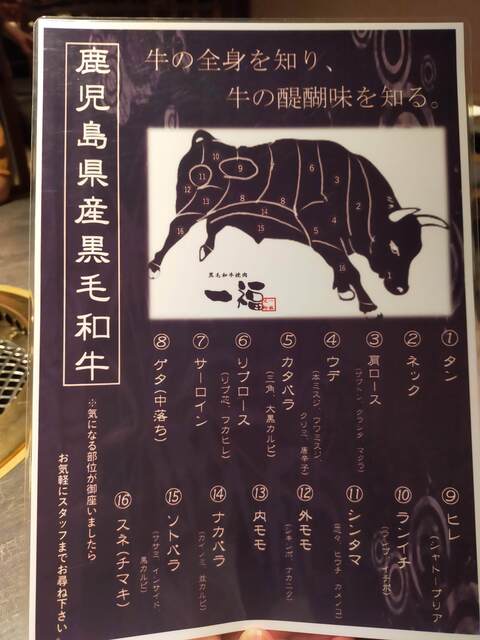 鹿児島県産黒毛和牛
牛の全身を知り、
牛の醍醐味を知る。
10
9
11
12
13
8
8
14
15
16
6
7
3
4
2
5
16
1
黒毛和牛焼肉
一福
①タン
②ネック
③肩ロース
④ウデ
(本ミスジ、ウワミスジ
クリミ、唐辛子)
⑤カタバラ
(三角、大黒カルビ)
⑥リブロース
(リブ芯、フカヒレ)
⑦サーロイン
⑧ゲタ(中落ち)
⑨ヒレ
(シャトーブリア
⑩ランイチ
⑪シンタマ
⑫外モモ
⑬内モモ
⑭ナカバラ
(カイノミ、並カルビ)
⑮ソトバラ
(ササミ、インサイド
黒カルビ)
⑯スネ(チマキ)
※気になる部位が御座いましたら
お気軽にスタッフまでお尋ね下さい